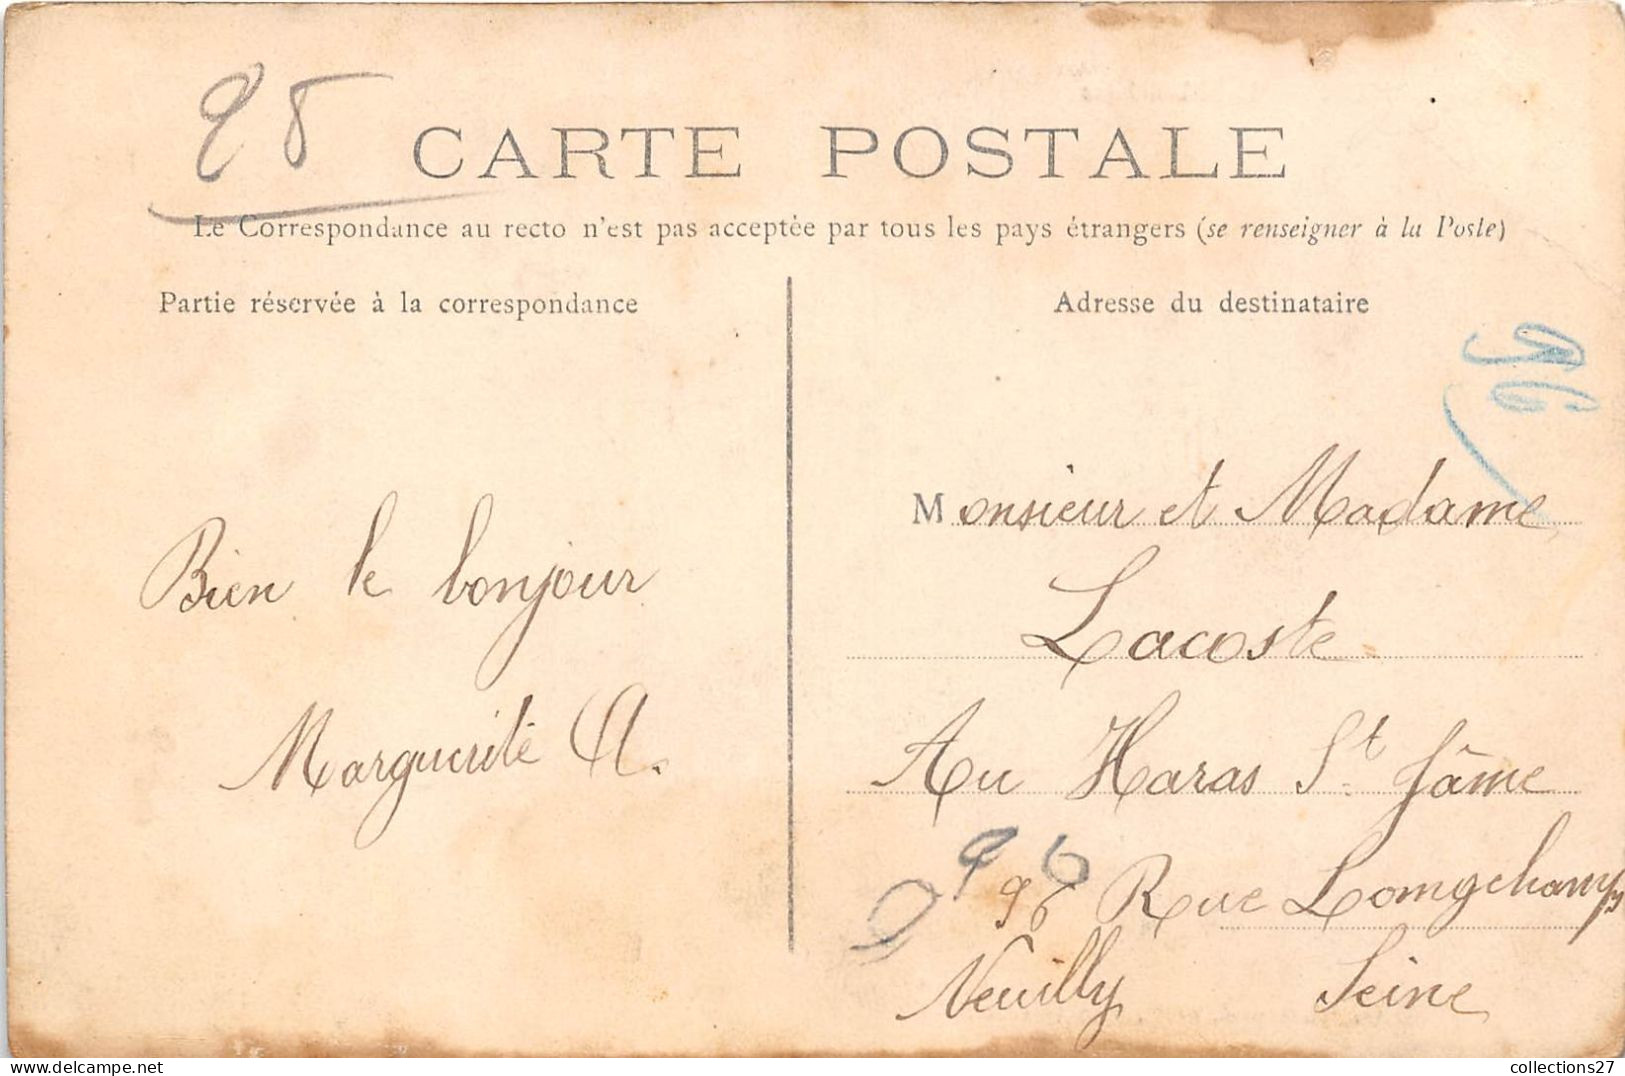 98
CARTE POSTALE
Le Correspondance au recto n'est pas acceptée par tous les pays étrangers (se renseigner à la Poste)
Partie réservée à la correspondance
Bien le bonjour
Marguerite A.
Adresse du destinataire
96
Monsieur et Madame
Lacoste
Au Haras St. Jâme
96 Rue Longchamps
Neuilly Seine
collections27